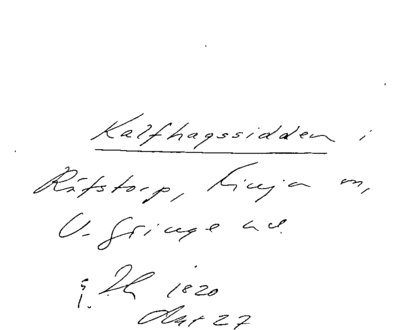 Kalfhagssidden i
Råfstorp, Kinja m,
V. Gringe hd.
1820
27